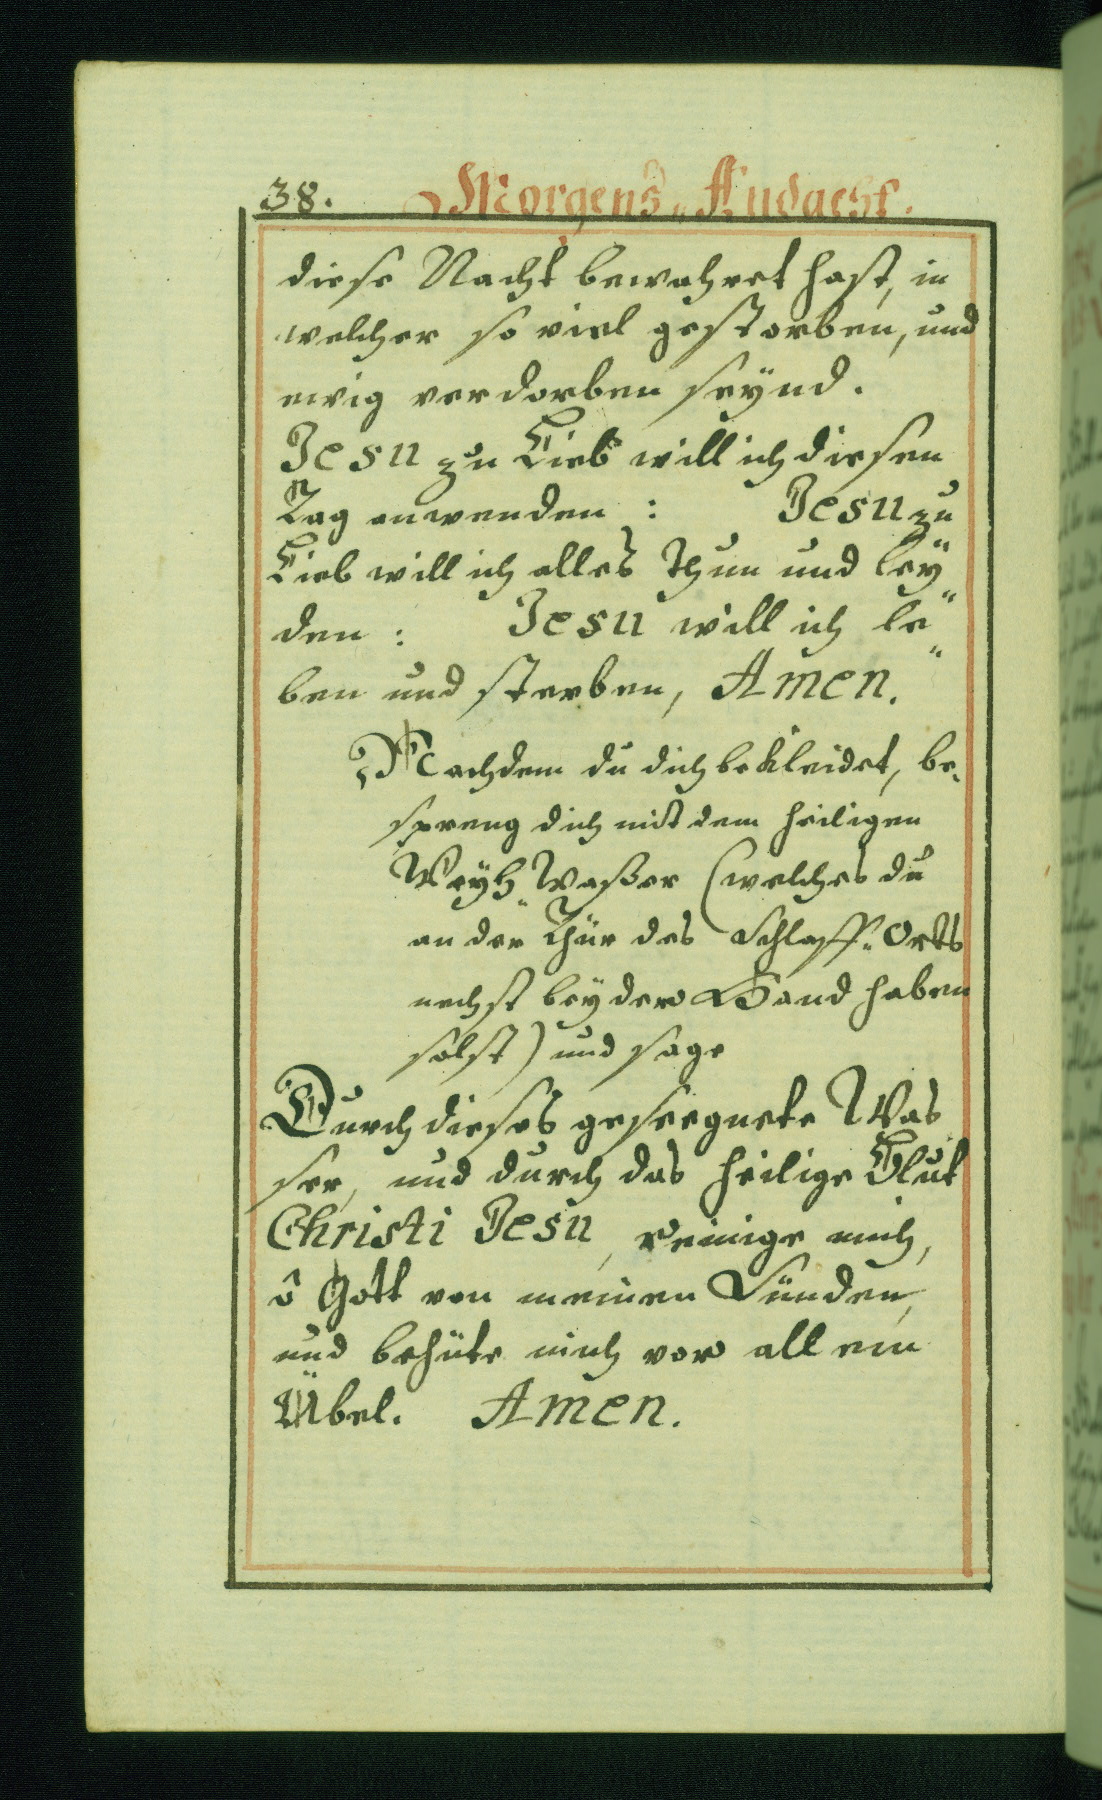 38. Morgens„Andacht.
diese Nacht bewahret hast, in
welcher so viel gestorben, und
ewig verdorben seÿnd.
Jesu zu Lieb will ich diesen
Tag anwenden : Jesu zu
Lieb will ich alles Thun und leÿ„
den : Jesu will ich le„
ben und sterben, Amen.
Nachdem du dich bekleidet, be„
spreng dich mit dem heiligen
Weÿh„Waßer (welches du
an der Thür des Schlaff„Orts
nechst beÿ der Hand haben
solst) und sage
Durch dieses geseegnete Was
ser, und durch das heilige Blut
Christi Jesu, reinige mich,
ô Gott von meinen Sünden,
und behüte mich vor allem
Übel. Amen.